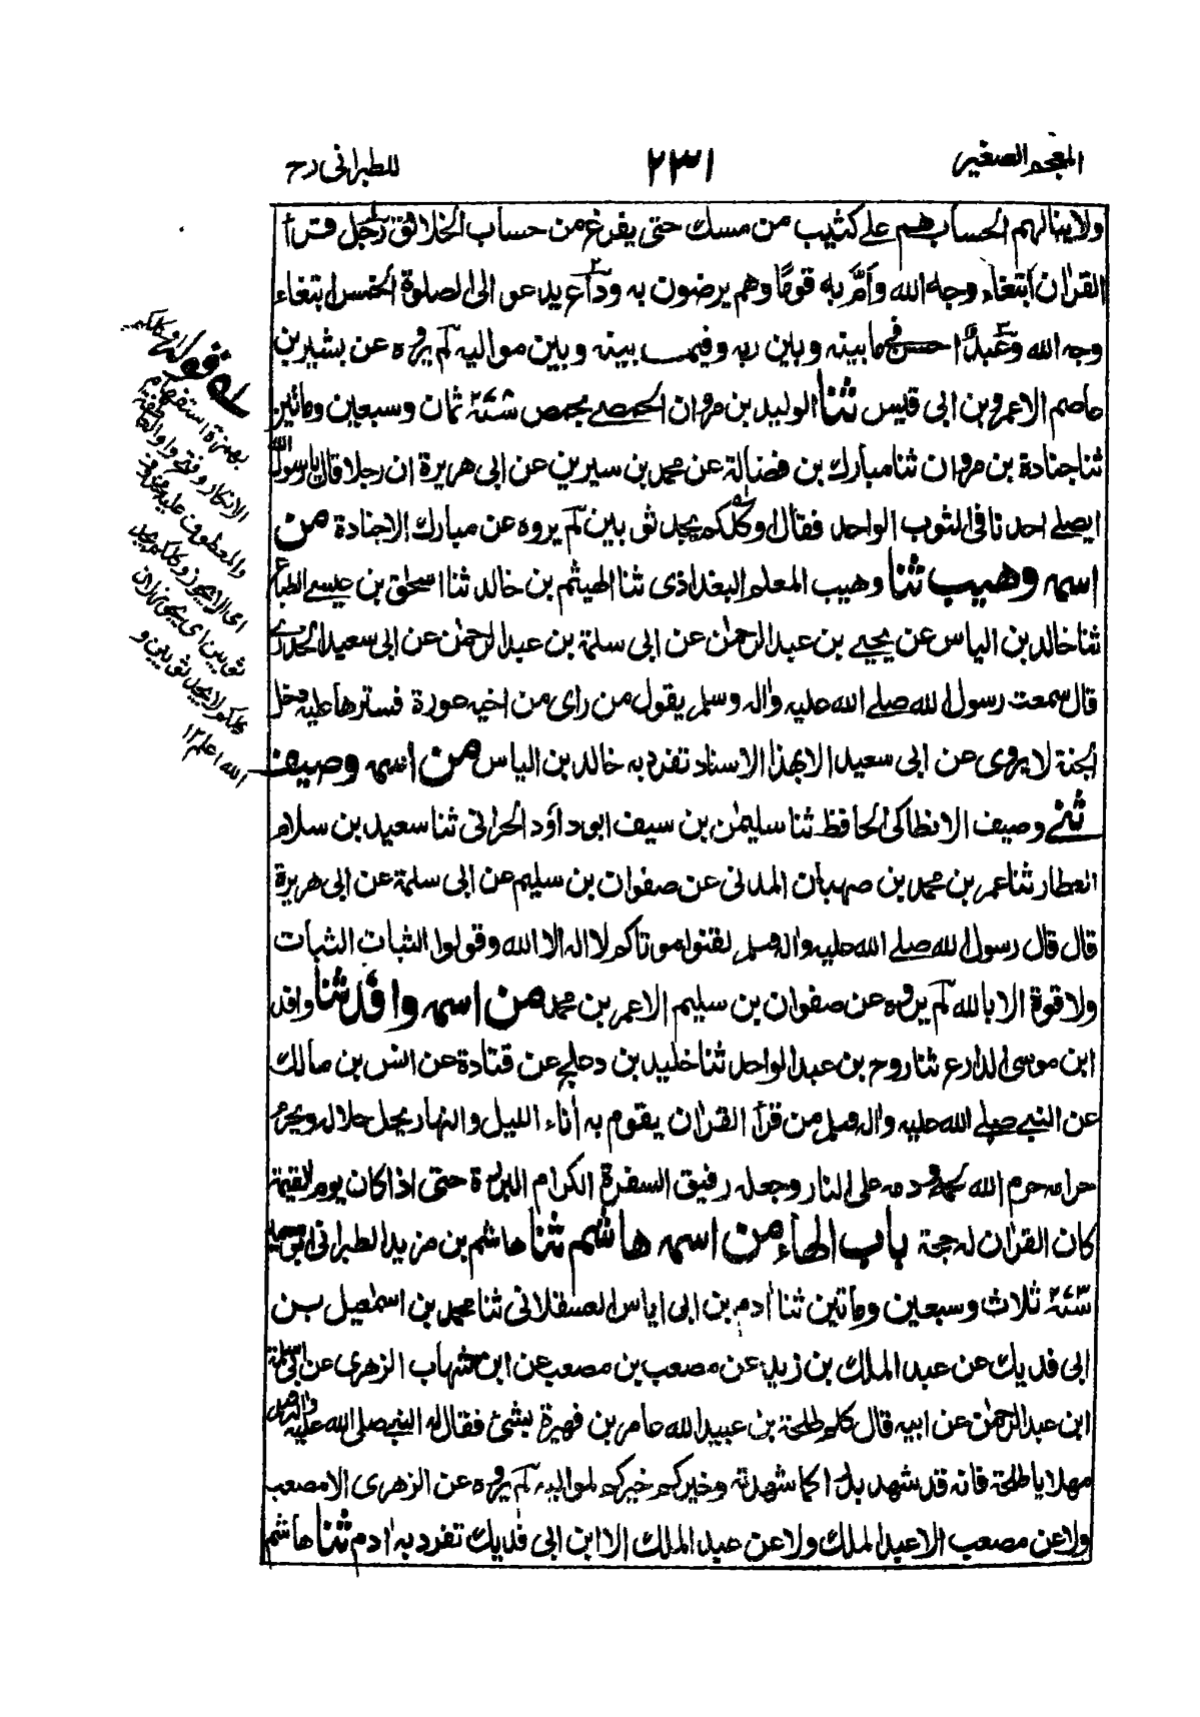 المعجم الصغير
٢٣١
للطبرانی رح
ولا ینالہم الحساب ہم علے کثیب من مسك حتی یفرغ من حساب الخلائق رجل قرأ
القرآن ابتغاء وجہ اللہ وأمّ بہ قومًا وھم یرضون بہ وداع یدعو الی الصلوۃ الخمس ابتغاء
وجہ اللہ وعبدٌ احسن فیما بینہ وباین ربہ وفیما بینہ وبین موالیہ لم یروہ عن بشیر بن
عاصم الا عمرو بن ابی قیس ثنا الولید بن مروان الحمصے بحمص سنۃ ثمان وسبعین ومائتین
ثنا جنادۃ بن مروان ثنا مبارك بن فضالۃ عن محمد بن سیرین عن ابی ھریرۃ ان رجلا قال یا رسول اللہ
ایصلے احدنا فی الثوب الواحد فقال اوکلکم یجد ثوبین لم یروہ عن مبارك الا جنادۃ من
اسمہ وھیب ثنا وھیب المعلم البغداذی ثنا الھیثم بن خالد ثنا اسحٰق بن عیسے الطباع
ثنا خالد بن الیاس عن یحیے بن عبد الرحمٰن عن ابی سلمۃ بن عبد الرحمٰن عن ابی سعید الخدرے
قال سمعت رسول اللہ صلے اللہ علیہ واٰلہ وسلم یقول من رای من اخیہ عورۃ فسترھا علیہ دخل
الجنۃ لا یروی عن ابی سعید الا بھذا الاسناد تفرد بہ خالد بن الیاس من اسمہ وصیف
ثنے وصیف الانطاکی الحافظ ثنا سلیمٰن بن سیف ابو داؤد الحرانی ثنا سعید بن سلام
العطار ثنا عمر بن محمد بن صہبان المدنی عن صفوان بن سلیم عن ابی سلمۃ عن ابی ھریرۃ
قال قال رسول اللہ صلے اللہ علیہ واٰلہ وسلم لقنوا موتاکم لا الہ الا اللہ وقولوا الثبات الثبات
ولا قوۃ الا باللہ لم یروہ عن صفوان بن سلیم الا عمر بن محمد من اسمہ واقد ثنا واقد
ابن موسی الذارع ثنا روح بن عبد الواحد ثنا خلید بن دعلج عن قتادۃ عن انس بن مالك
عن النبے صلے اللہ علیہ واٰلہ وسلم من قرأ القرآن یقوم بہ اٰناء اللیل والنہار یحل حلالہ ویحرم
حرامہ حرم اللہ لحمہ ودمہ علی النار وجعلہ رفیق السفرۃ الکرام البررۃ حتی اذا کان یوم القیٰمۃ
کان القرآن لہ حجۃ باب الھاء من اسمہ ھاشم ثنا ھاشم بن مزید الطبرانی
سنۃ ثلاث وسبعین ومأتین ثنا اٰدم بن ابی ایاس العسقلانی ثنا محمد بن اسمٰعیل بن
ابی فدیك عن عبد الملك بن زید عن مصعب بن مصعب عن ابن شہاب الزھری عن ابی سلمۃ
ابن عبد الرحمٰن عن ابیہ قال کلم طلحۃ بن عبید اللہ عامر بن فھیرۃ بشئ فقال لہ النبے صلی اللہ علیہ واٰلہ وسلم
مہلا یا طلحۃ فانہ قد شھد بدرا کما شھدتہ وخیرکم خیرکم لموالیہ لم یروہ عن الزھری الا مصعب
ولا عن مصعب الا عبد الملك ولا عن عبد الملك الا ابن ابی فدیك تفرد بہ اٰدم ثنا ھاشم
لہ قولہ اوکلکم
بھمزۃ استفھام
الانکار وفتح واو العاطفۃ
والمعطوف علیہ محذوف
ای الا یجوز وکلکم یجد
ثوبین ای یجوز لان
کلکم لا یجد ثوبین و
اللہ اعلم ١٢